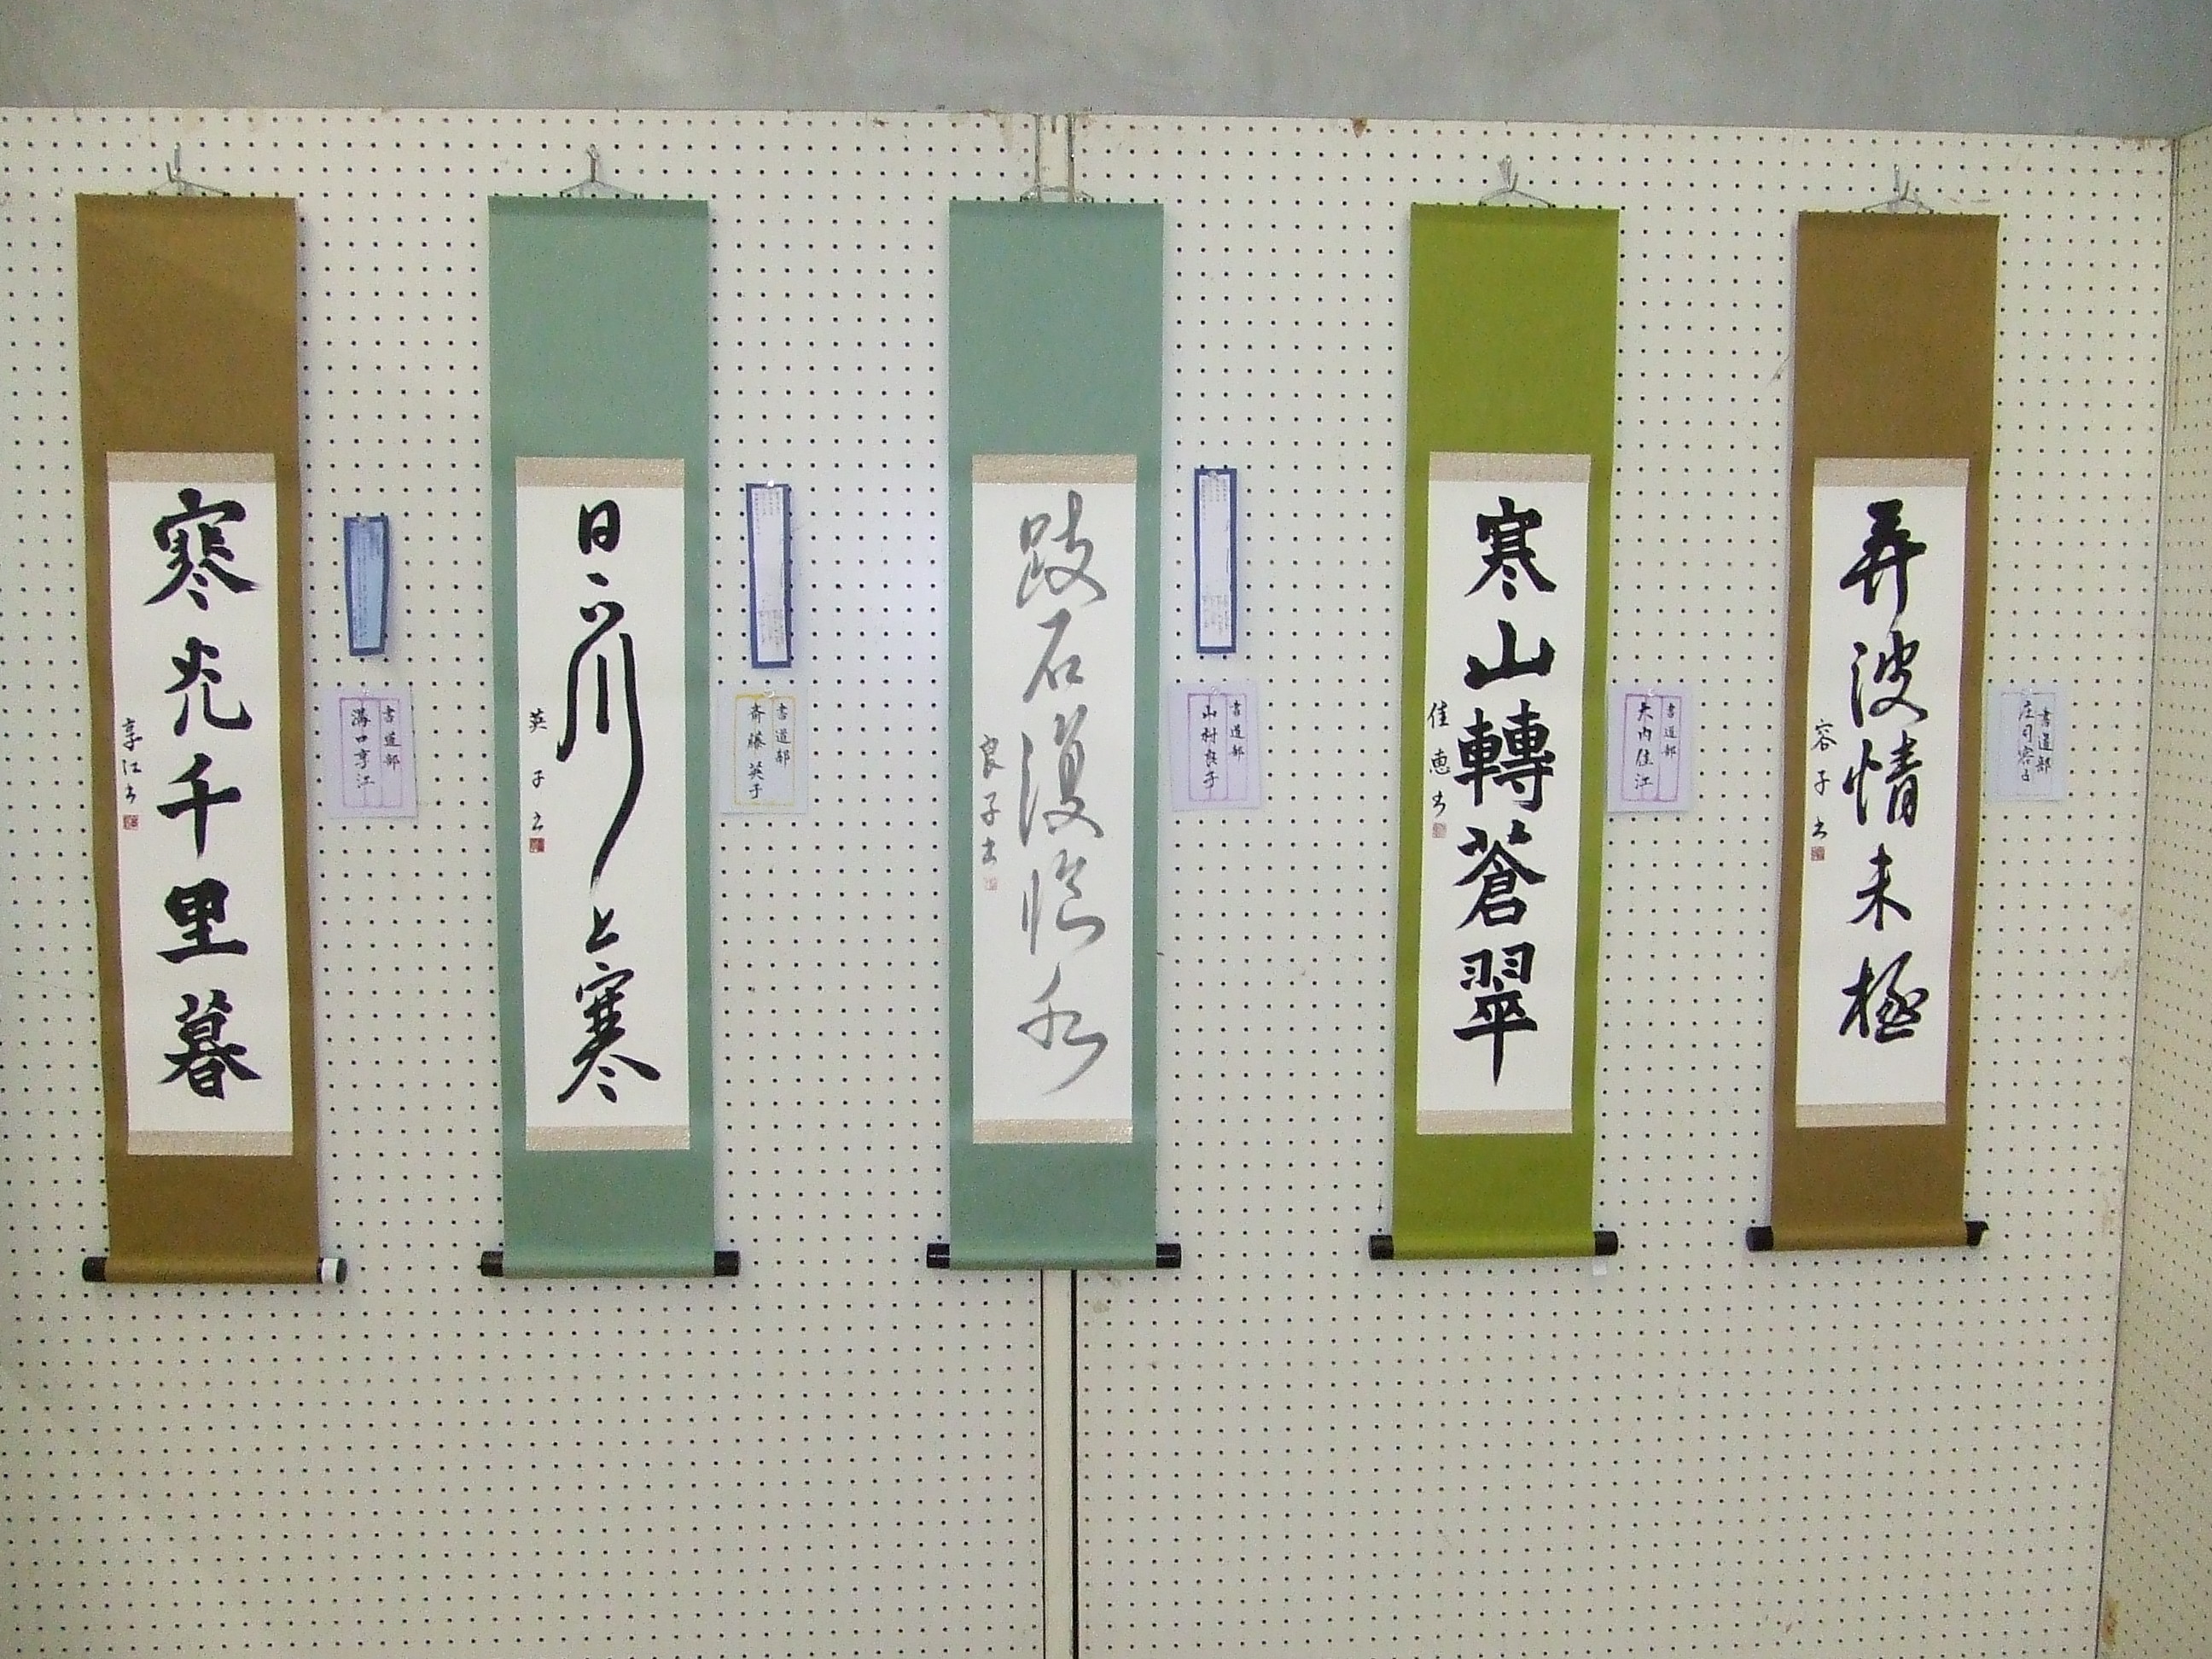 寒光千里暮
享江書
書道部
溝口享江
日下川上寒
英子書
書道部
斎藤英子
跂石復臨水
良子書
書道部
山村良子
寒山轉蒼翠
佳恵書
書道部
弄波情未極
容子書
書道部
庄司容子